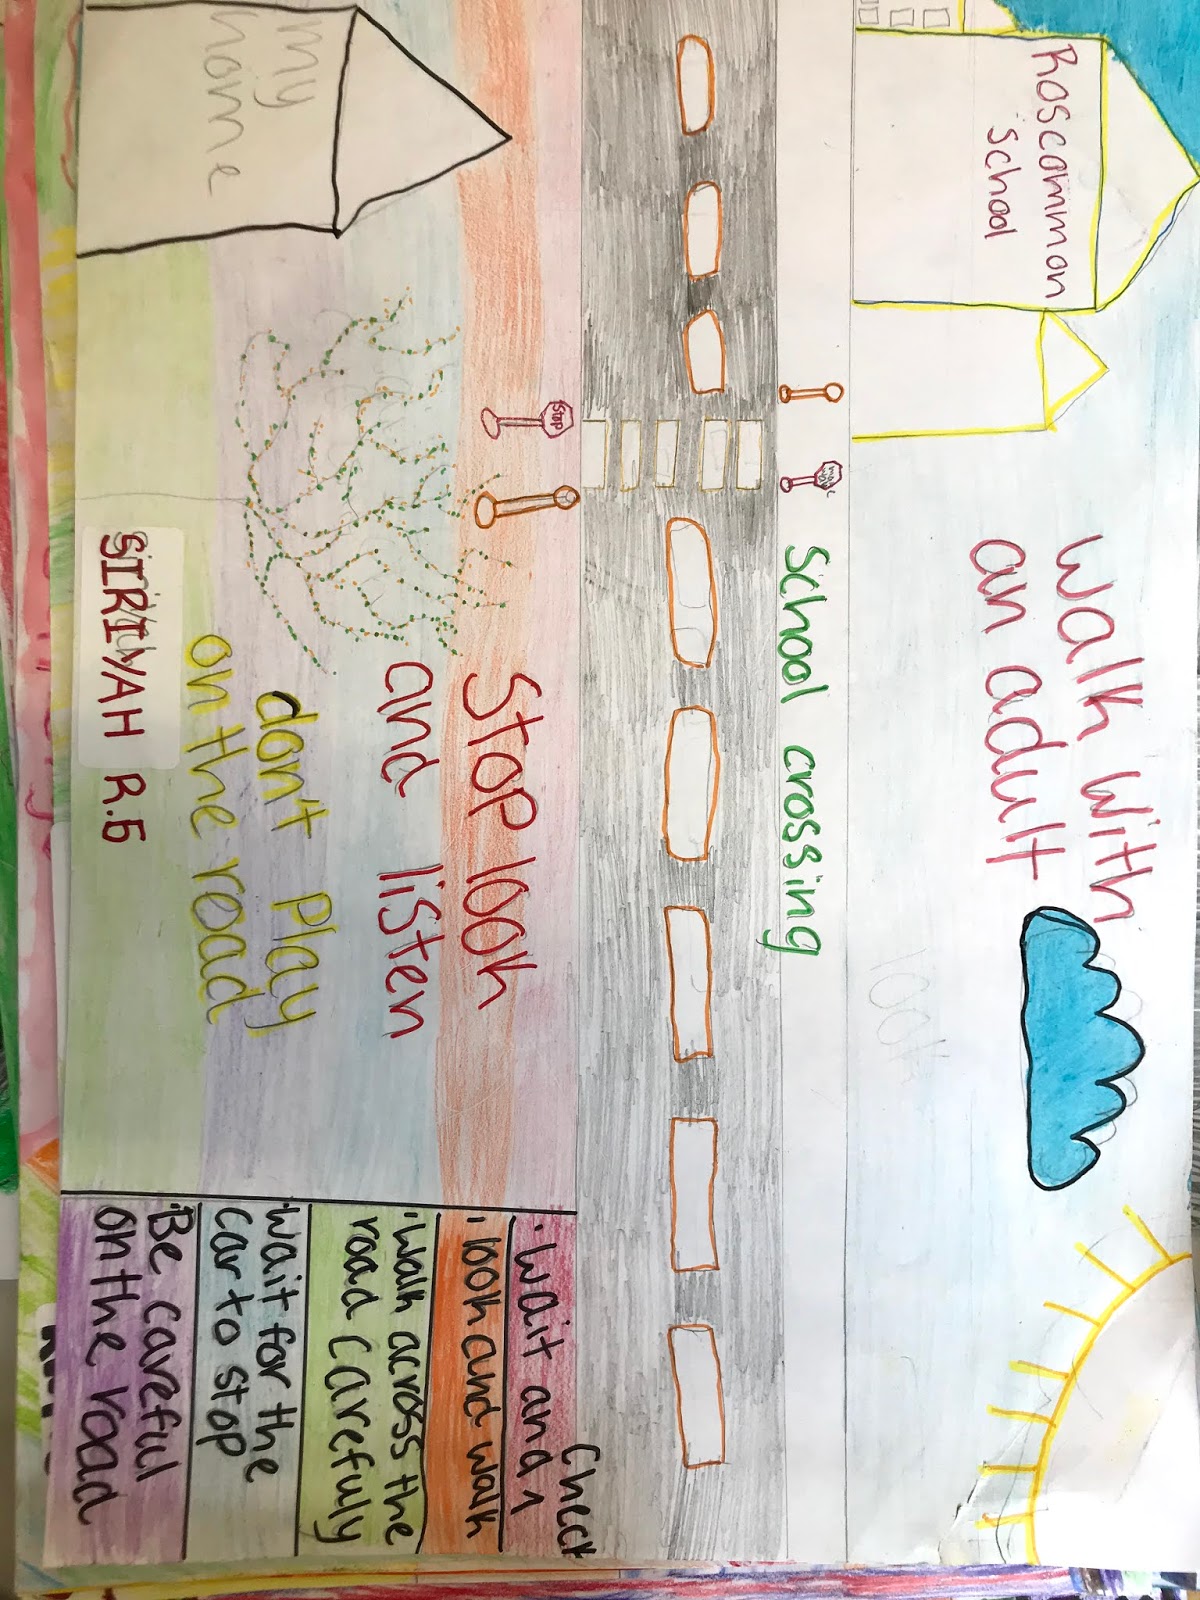 Roscommon
School
Walk with
an adult
School crossing
Stop
my
home
Stop look
and listen
don't Play
on the road
SIRIYAH R.5
Check
·Wait and
·look and walk
·Walk across the
road carefully
·Wait for the
car to stop
·Be careful
on the road